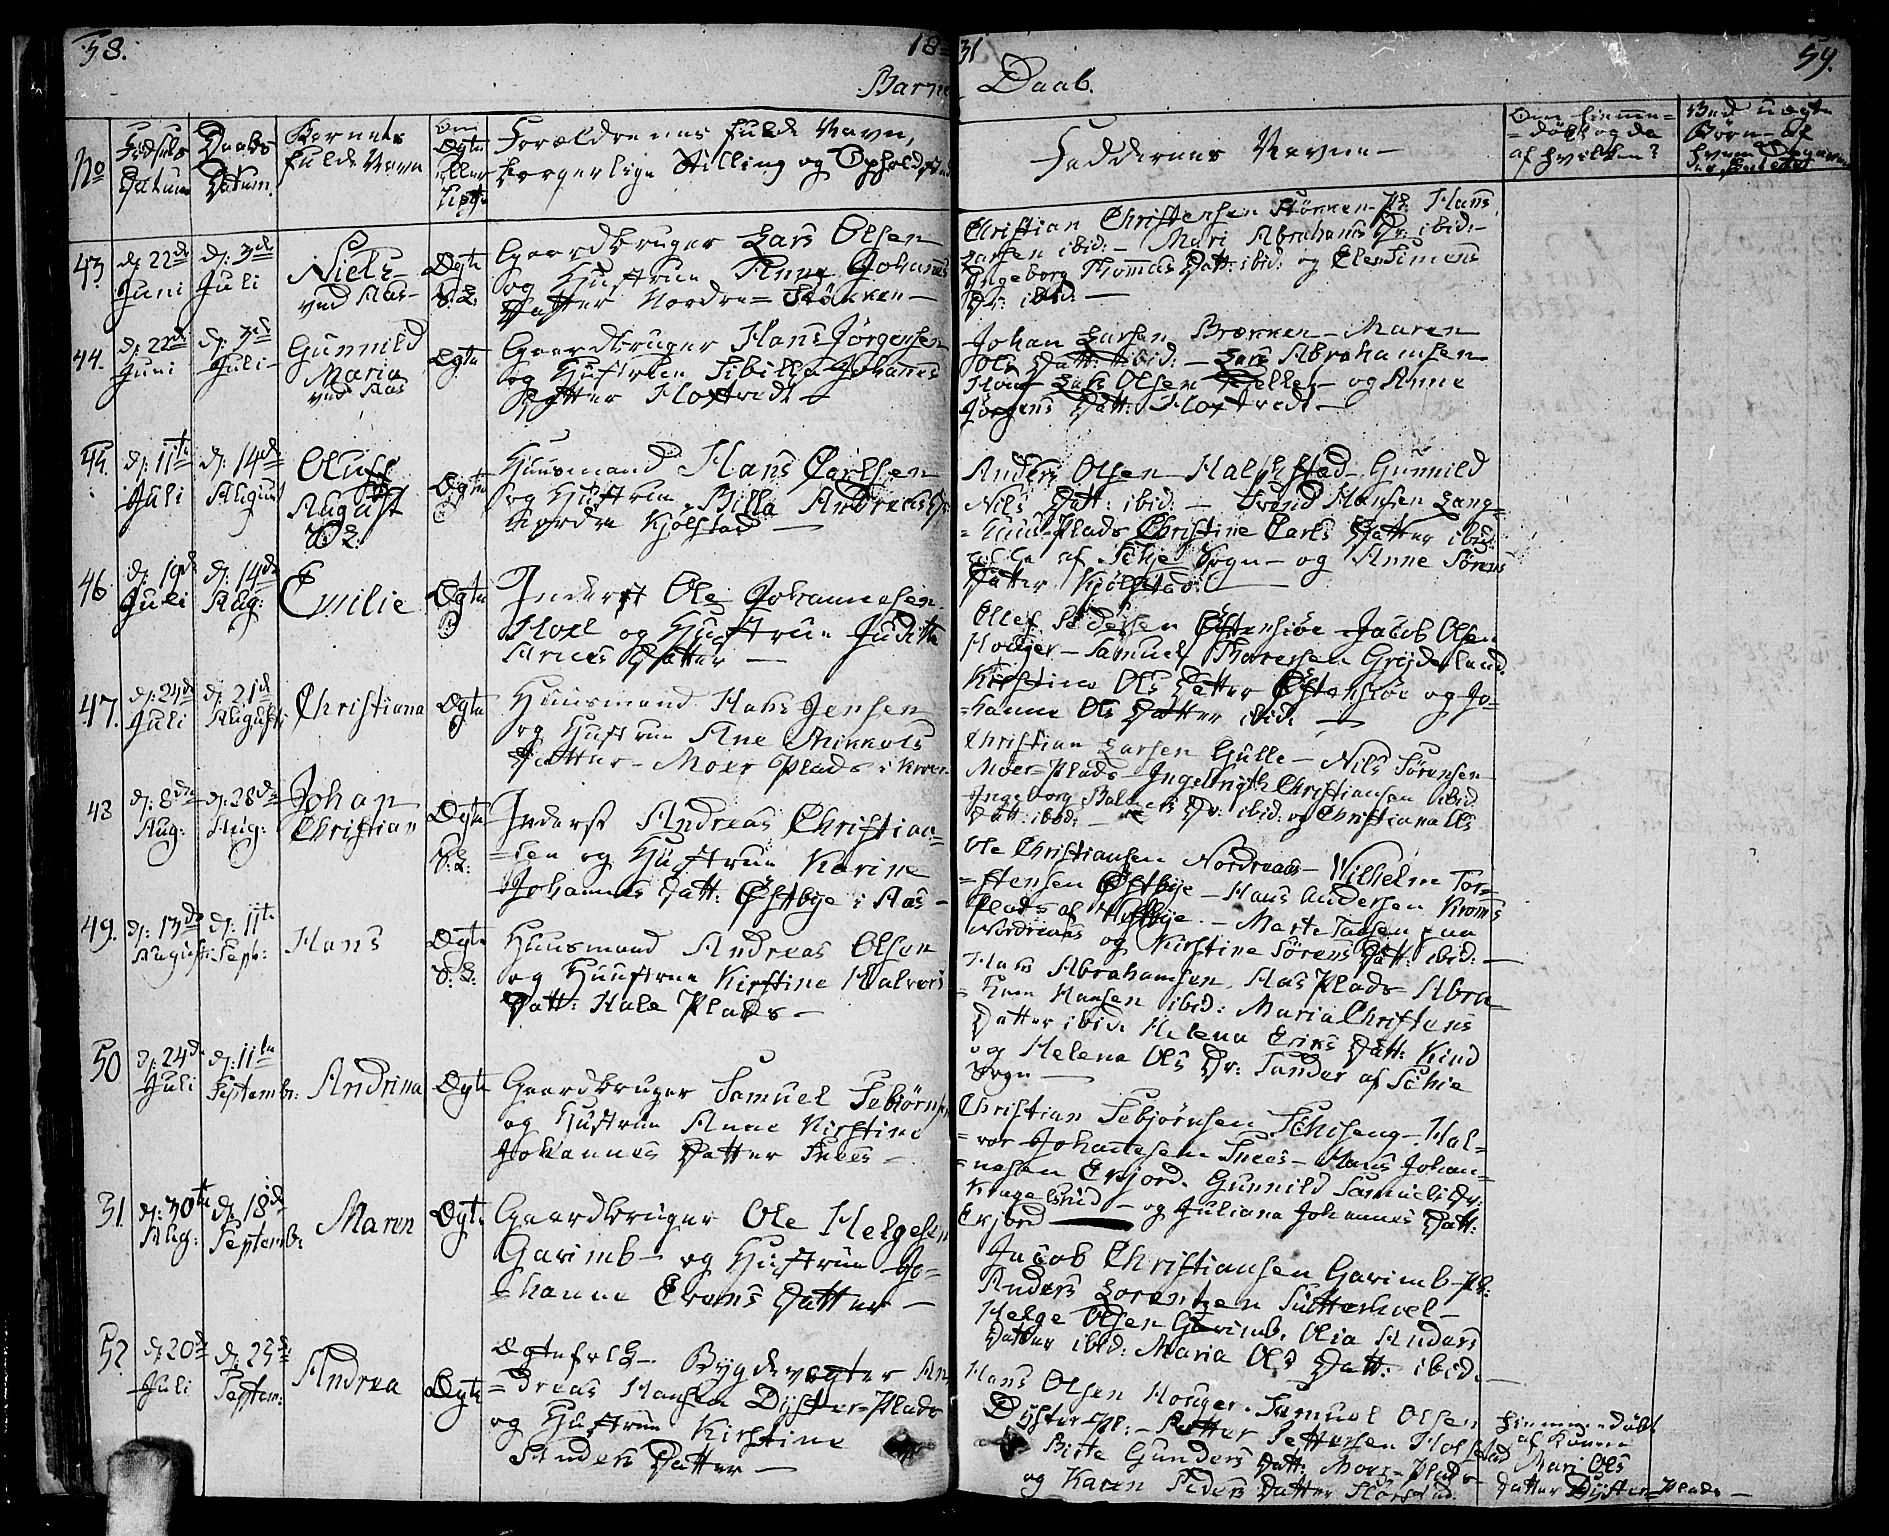 58.
1831
59.
Barne Daab.
No
Fødsels Datum
Daabs Datum.
Barnets fulde Navn
Om Ægte eller Uægte
Forældrenes fulde Navn, borgerlige Stilling og Opholdssted
Faddernes Navne
Om hiemme-
=døbt og da
af hvilken?
Ved uægte
Børn af
hvem
43.
d: 22de Juni
d: 3de Juli
Niels
ved Aas
Ægte
V: E:
Gaardbruger Lars Olsen
og Hustrue Anne Johannes
Datter Nordre= Støkken
Christian Christensen Støkken Pl: Hans
Larsen ibid: Mari Abrahams Dr: ibid:
Ingeborg Thommas Datt: ibid: og Elen Simens
Dr: ibid:
44.
d: 22de Juni
d: 3de Juli
Gunnild
Maria
ved Aas
Ægte
Gaardbruger Hans Jørgensen
og Hustrue Sibille Johannes
Datter Hoxtvedt
Johan Larsen Brekken Maren
Ols Datt: ibid: Lars Abrahamsen
Lars Olsen og Anne
Jørgens Datt: Hoxtvedt
45.
d: 11te Juli
d: 14de August
Oluf
August
V: E:
Ægte
Huusmand Hans Carlsen
og Hustrue Billa Andreas Dr
Nordre Kjølstad
Anders Olsen Gunnild
Nils Datt: ibid: Svend Hansen Lang=
Plads Christine Carls Datter ibid:
af Schie Sogn og Anne Sørens
Datter Kjølstad:
46
d: 19de Juli
d: 14de Aug:
Emilie
Ægte
Inderst Ole Johannesen
Hoel og Hustrue Judithe
Arnes Datter
Ollef Pedersen Østensiøe Jacob Olsen
Houger Samuel Thoresen Grøderland
Kirstine Ols Datter Østensiøe og Jo-
=hanne Ols Datter ibid:
47.
d: 24de Juli
d: 21de August
Christiana
Ægte
Huusmand Hans Jensen
og Hustrue Ane Mikkels
Datter Moer Plads i Kroer
Christian Larsen Gulle Nils Sørensen
Moer=Plads Ingebrigth Christiansen ibid
Ingeborg Dr: ibid: og Christiana Ols
Datt: ibid:
48
d: 8de Aug:
d: 28de Aug:
Johan
Christian
Ægte
V: E:
Inderst Andreas Christian-
=sen og Hustrue Karine
Johannes Datt: Østbye i Aas
Ole Christiansen Nordraas Wilhelm Tor=
=stensen Østbye Hans Andersen Kroms
Plads af Marte
Nordraas og Kirstine Sørens Datt: ibid:
49.
d: 13de August
d: 11te Septb:
Hans
Ægte
V: E:
Huusmand Andreas Olsen
og Huustrue Kirstine Halvors
Datt: Hale Plads
Hans Abrahamsen Aas Plads Abra=
=ham Hansen ibid: Maria Christens
Datter ibid: Helena Eriks Datt: Kind
og Helena Ols Dr: Sander af Schie
Sogn
50
d: 24de Juli
d: 11te Septembr:
Andrina
Ægte
Gaardbruger Samuel Sebjørns
og Hustrue Anne Kirstine
Johannes Datter Snees
Christian Sebjørnsen Schiseng Hal=
=vor Johannesen Snees Hans Johan=
=nesen Erjord. Gunnild Samuels Dr:
og Juliana Johannes Datt:
Erjord
51.
d: 30te Aug:
d: 18de Septemb:
Maren
Ægte
Gaardbruger Ole Helgesen
Garimb og Hustrue Jo=
=hanne Evens Datter
Jacob Christiansen Garimb Pl:
Anders Lorentzen
Helge Olsen Garimb. Olia Anders
Datter ibid: Maria Ols Datt: ibid.
52.
d: 20de Juli
d: 25de Septem:
Andrea
Ægte
Ægtefolk Bygdevægter An
=dreas Hansen Dyster=Plads
og Hustrue Kirstine
Anders Datter
Hans Olsen Houger. Samuel Olsen
Dyster Pl: Petter Pettersen
Birte Gunders Datt: Moer=Plads
og Karen Peders Datter
Hiemmedøbt
af Konen
Mari Ols
Datter Dyster=Plads